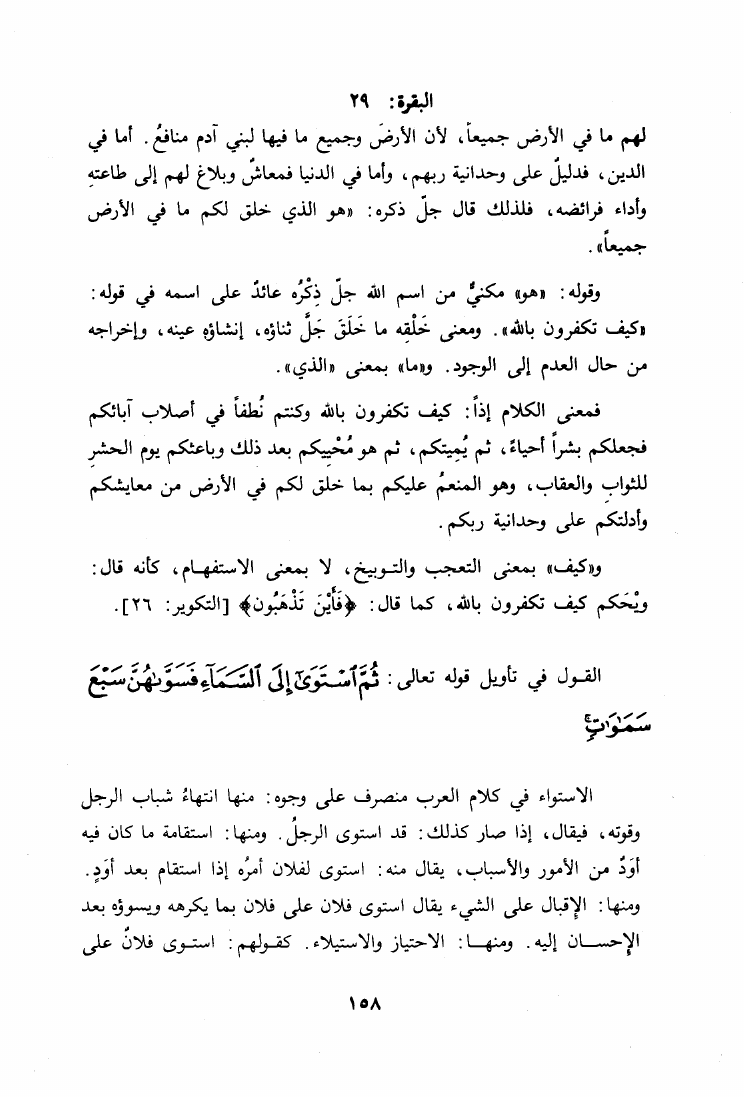 البقرة: ٢٩
لهم ما في الأرض جميعاً، لأن الأرضَ وجميع ما فيها لبني آدم منافعُ. أما في
الدين، فدليلٌ على وحدانية ربهم، وأما في الدنيا فمعاشٌ وبلاغ لهم إلى طاعتهِ
وأداء فرائضه، فلذلك قال جلّ ذكره: «هو الذي خلق لكم ما في الأرض
جميعاً».
وقوله: «هو» مكنيٌّ من اسم الله جلّ ذِكْرُه عائدٌ على اسمه في قوله:
«كيف تكفرون بالله». ومعنى خَلْقِه ما خَلَقَ جَلَّ ثناؤه، إنشاؤه عينه، وإخراجه
من حال العدم إلى الوجود. و«ما» بمعنى «الذي».
فمعنى الكلام إذاً: كيف تكفرون بالله وكنتم نُطفاً في أصلاب آبائكم
فجعلكم بشراً أحياءً، ثم يُمِيتكم، ثم هو مُحْييكم بعد ذلك وباعثكم يوم الحشرِ
للثوابِ والعقاب، وهو المنعمُ عليكم بما خلق لكم في الأرض من معايشكم
وأدلتكم على وحدانية ربكم.
و«كيف» بمعنى التعجب والتوبيخ، لا بمعنى الاستفهام، كأنه قال:
ويْحَكم كيف تكفرون بالله، كما قال: ﴿فَأَيْنَ تَذْهَبُون﴾ [التكوير: ٢٦].
القول في تأويل قوله تعالى: ثُمَّ ٱسْتَوَىٰٓ إِلَى ٱلسَّمَآءِ فَسَوَّىٰهُنَّ سَبْعَ
سَمَٰوَٰتٍۚ
الاستواء في كلام العرب منصرف على وجوه: منها انتهاءُ شباب الرجل
وقوته، فيقال، إذا صار كذلك: قد استوى الرجلُ. ومنها: استقامة ما كان فيه
أوَدٌ من الأمور والأسباب، يقال منه: استوى لفلان أمرُه إذا استقام بعد أوَدٍ.
ومنها: الإقبال على الشيء يقال استوى فلان على فلان بما يكرهه ويسوؤه بعد
الإحسان إليه. ومنها: الاحتياز والاستيلاء. كقولهم: استوى فلانٌ على
١٥٨